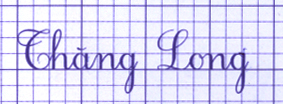 Thăng Long